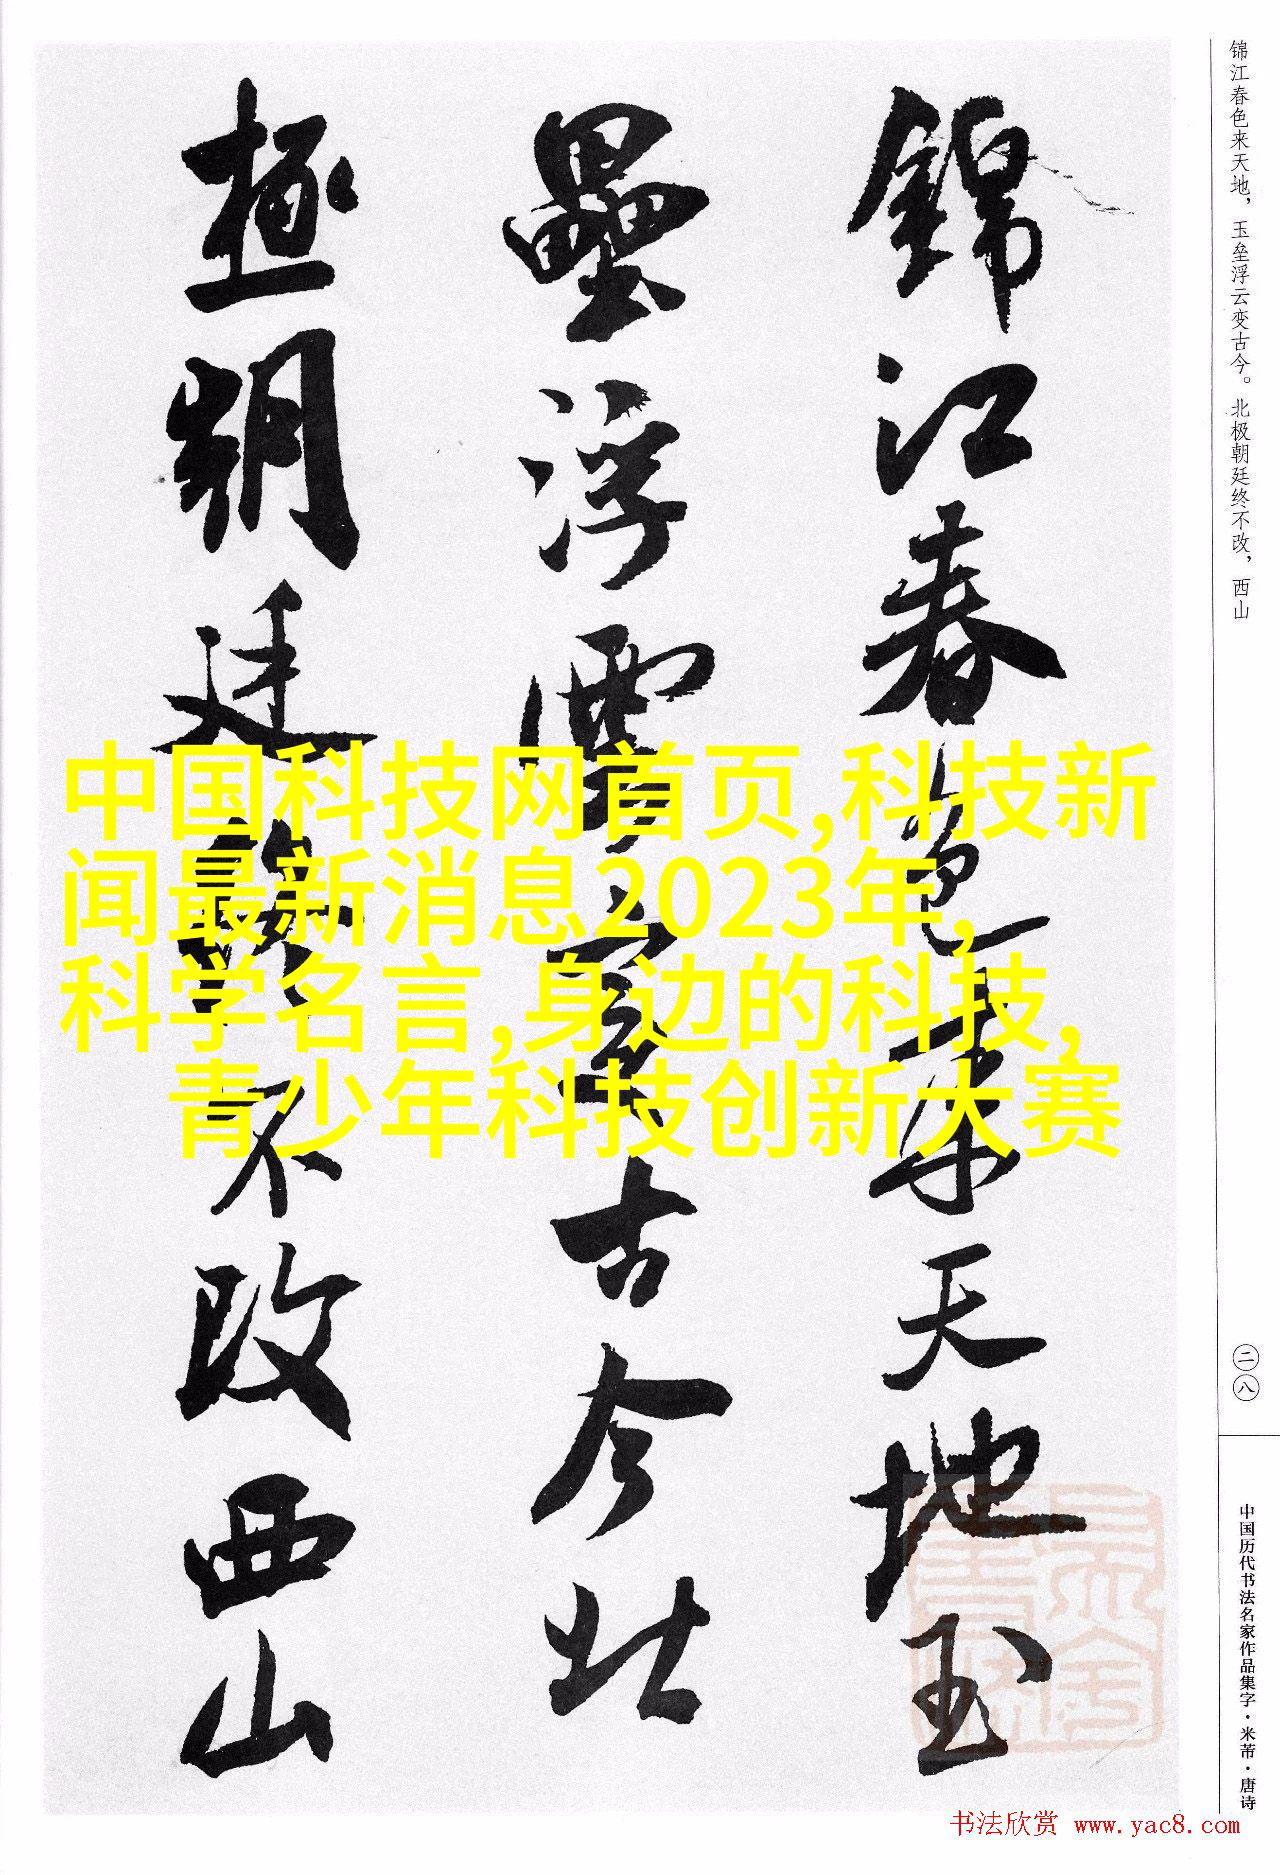 锦江春色来天地，玉垒浮云变古今。北极朝廷终不改，西山
錦江春色来天地玉
壘浮雲變古今北
極朝廷終不改西山
中国科技网首页,科技新
闻最新消息2023年,
科学名言,身边的科技,
青少年科技创新大赛
二八
中国历代书法名家作品集字·米芾·唐诗
书法欣赏 www.yac8.com